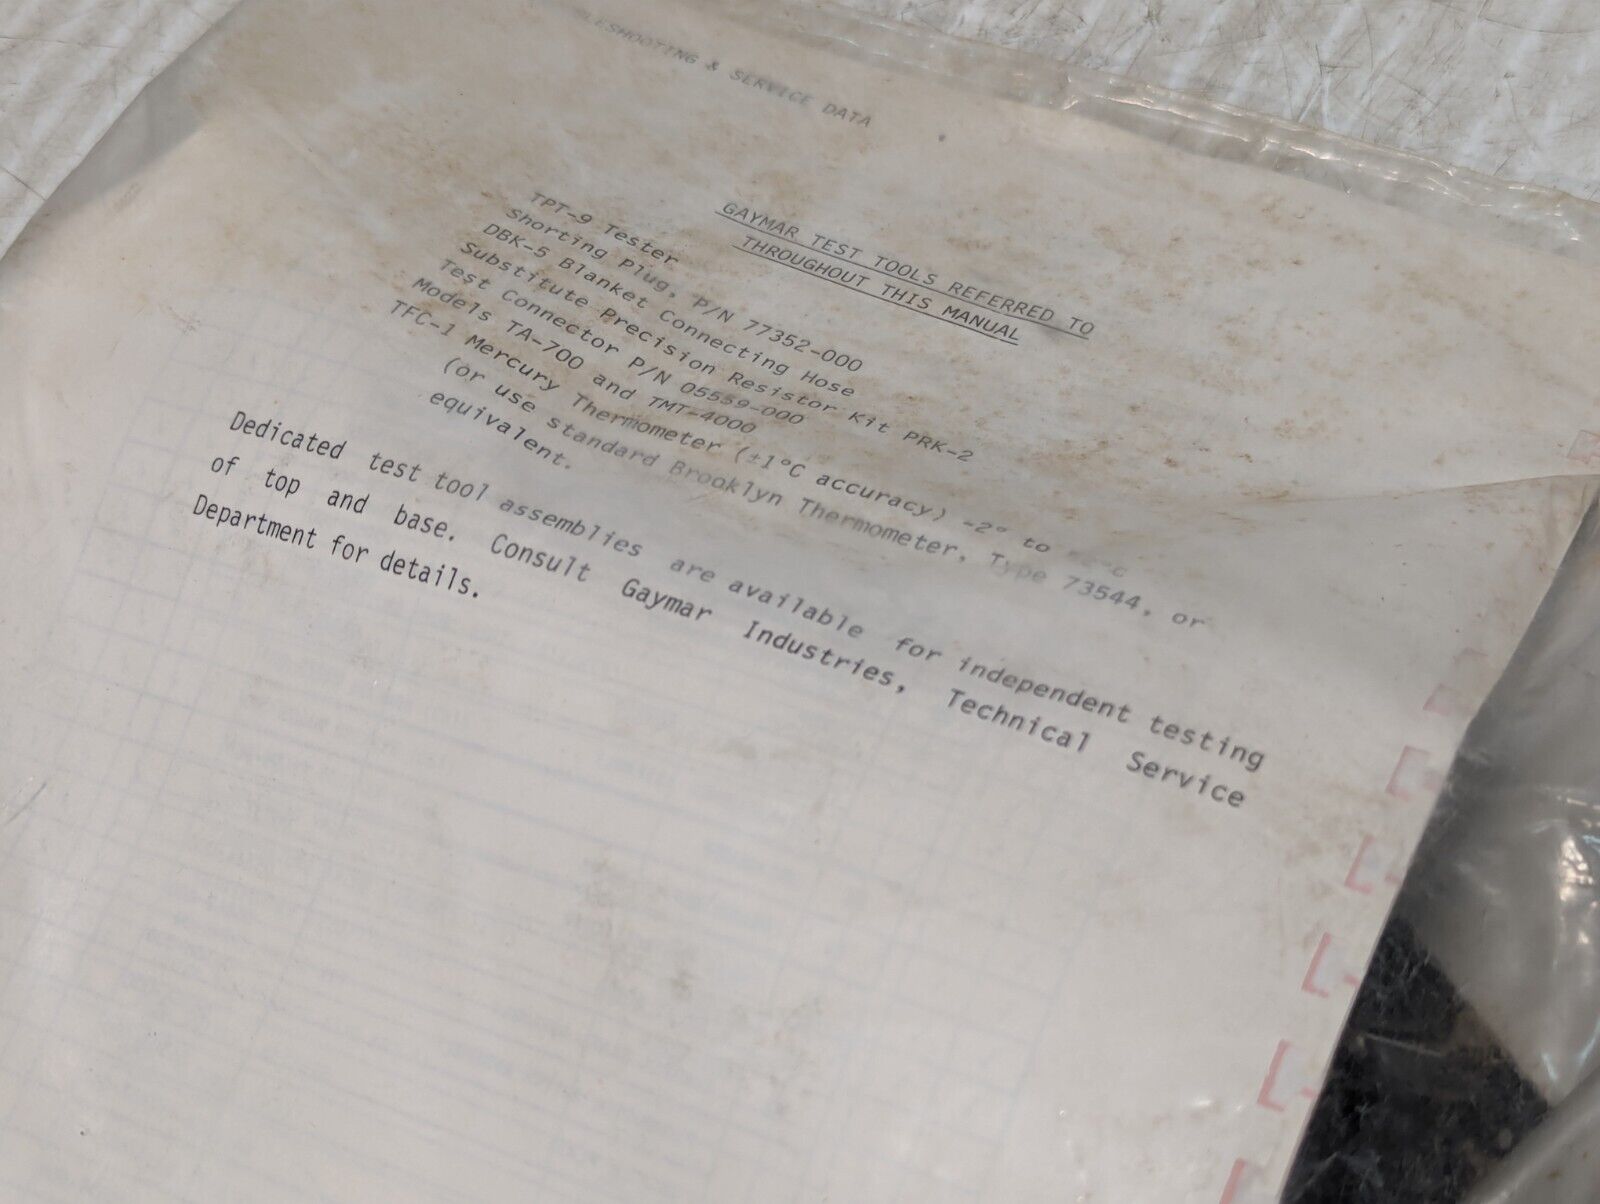 & SERVICE DATA
GAYMAR TEST TOOLS REFERRED TO
THROUGHOUT THIS MANUAL
TPT-9 Tester
Shorting Plug, P/N 77352-000
DBK-5 Blanket Connecting Hose
Substitute Precision Resistor Kit PRK-2
Test Connector P/N 05559-000
Models TA-700 and TMT-4000
TFC-1 Mercury Thermometer (±1°C accuracy) -2° to
(or use standard Brooklyn Thermometer, Type 73544, or
equivalent.
Dedicated test tool assemblies are available for independent testing
of top and base. Consult Gaymar Industries, Technical Service
Department for details.